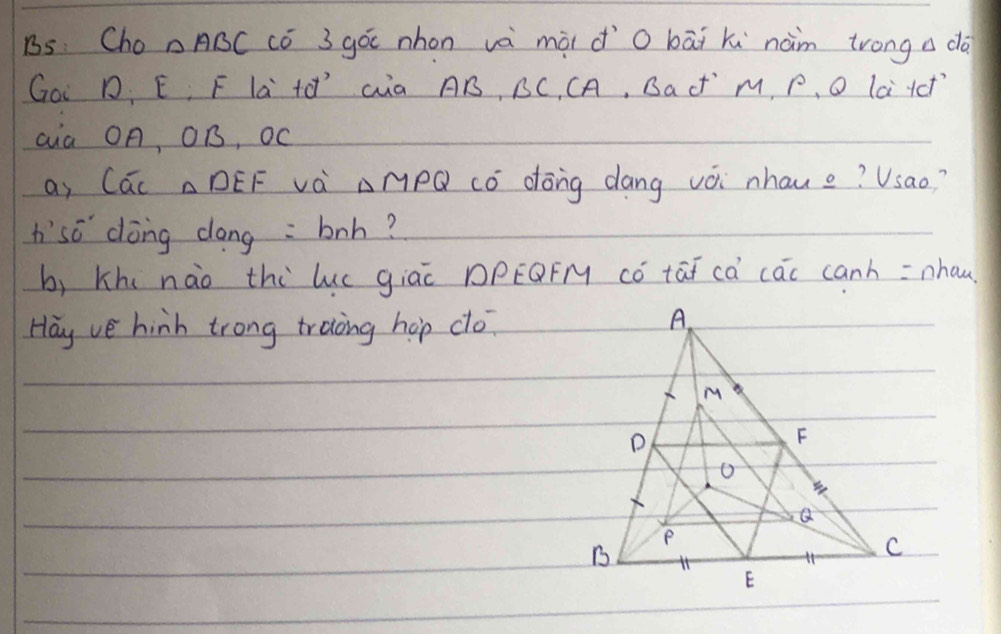 B5: Cho △ABC có 3 góc nhọn và một đ' O bất kì nằm trong △ đó
Gọi D, E, F là tđ' của AB, BC, CA. Ba đ' M, P, Q là tđ'
của OA, OB, OC
a, Các △DEF và △MPQ có đồng dạng với nhau o? Vsao?
h'số đồng dạng = bnh?
b, Khi nào thì lục giác DPEQFM có tất cả các cạnh = nhau.
Hãy vẽ hình trong trường hợp đó.
A
M
D
F
O
P
Q
B
C
E